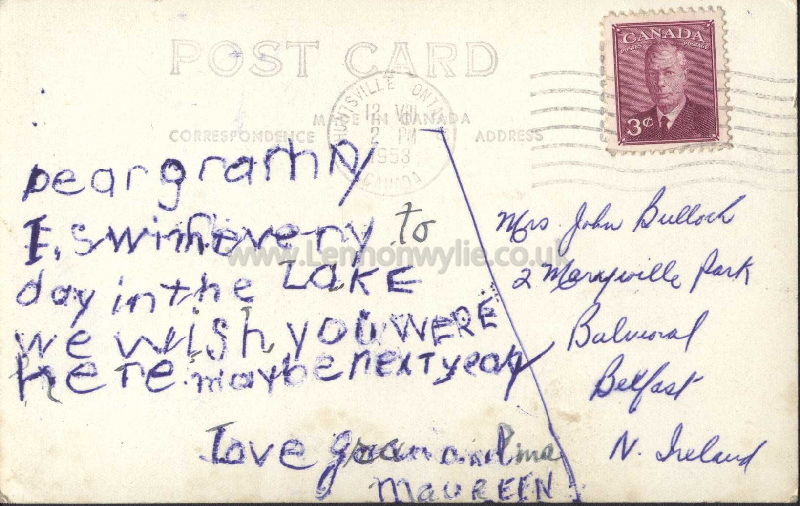 POST CARD
CANADA
POSTES POSTAGE
3¢
HUNTSVILLE ONTARIO
12 VIII
2 PM
1953
CANADA
MADE IN CANADA
CORRESPONDENCE
ADDRESS
Dear granny
I, swim every to
day in the LAKE
we wish you WERE
here. maybe next year
love
MAUREEN
Mrs. John Bulloch
2 Maryville Park
Balmoral
Belfast
N. Ireland
www.Lennonwylie.co.uk